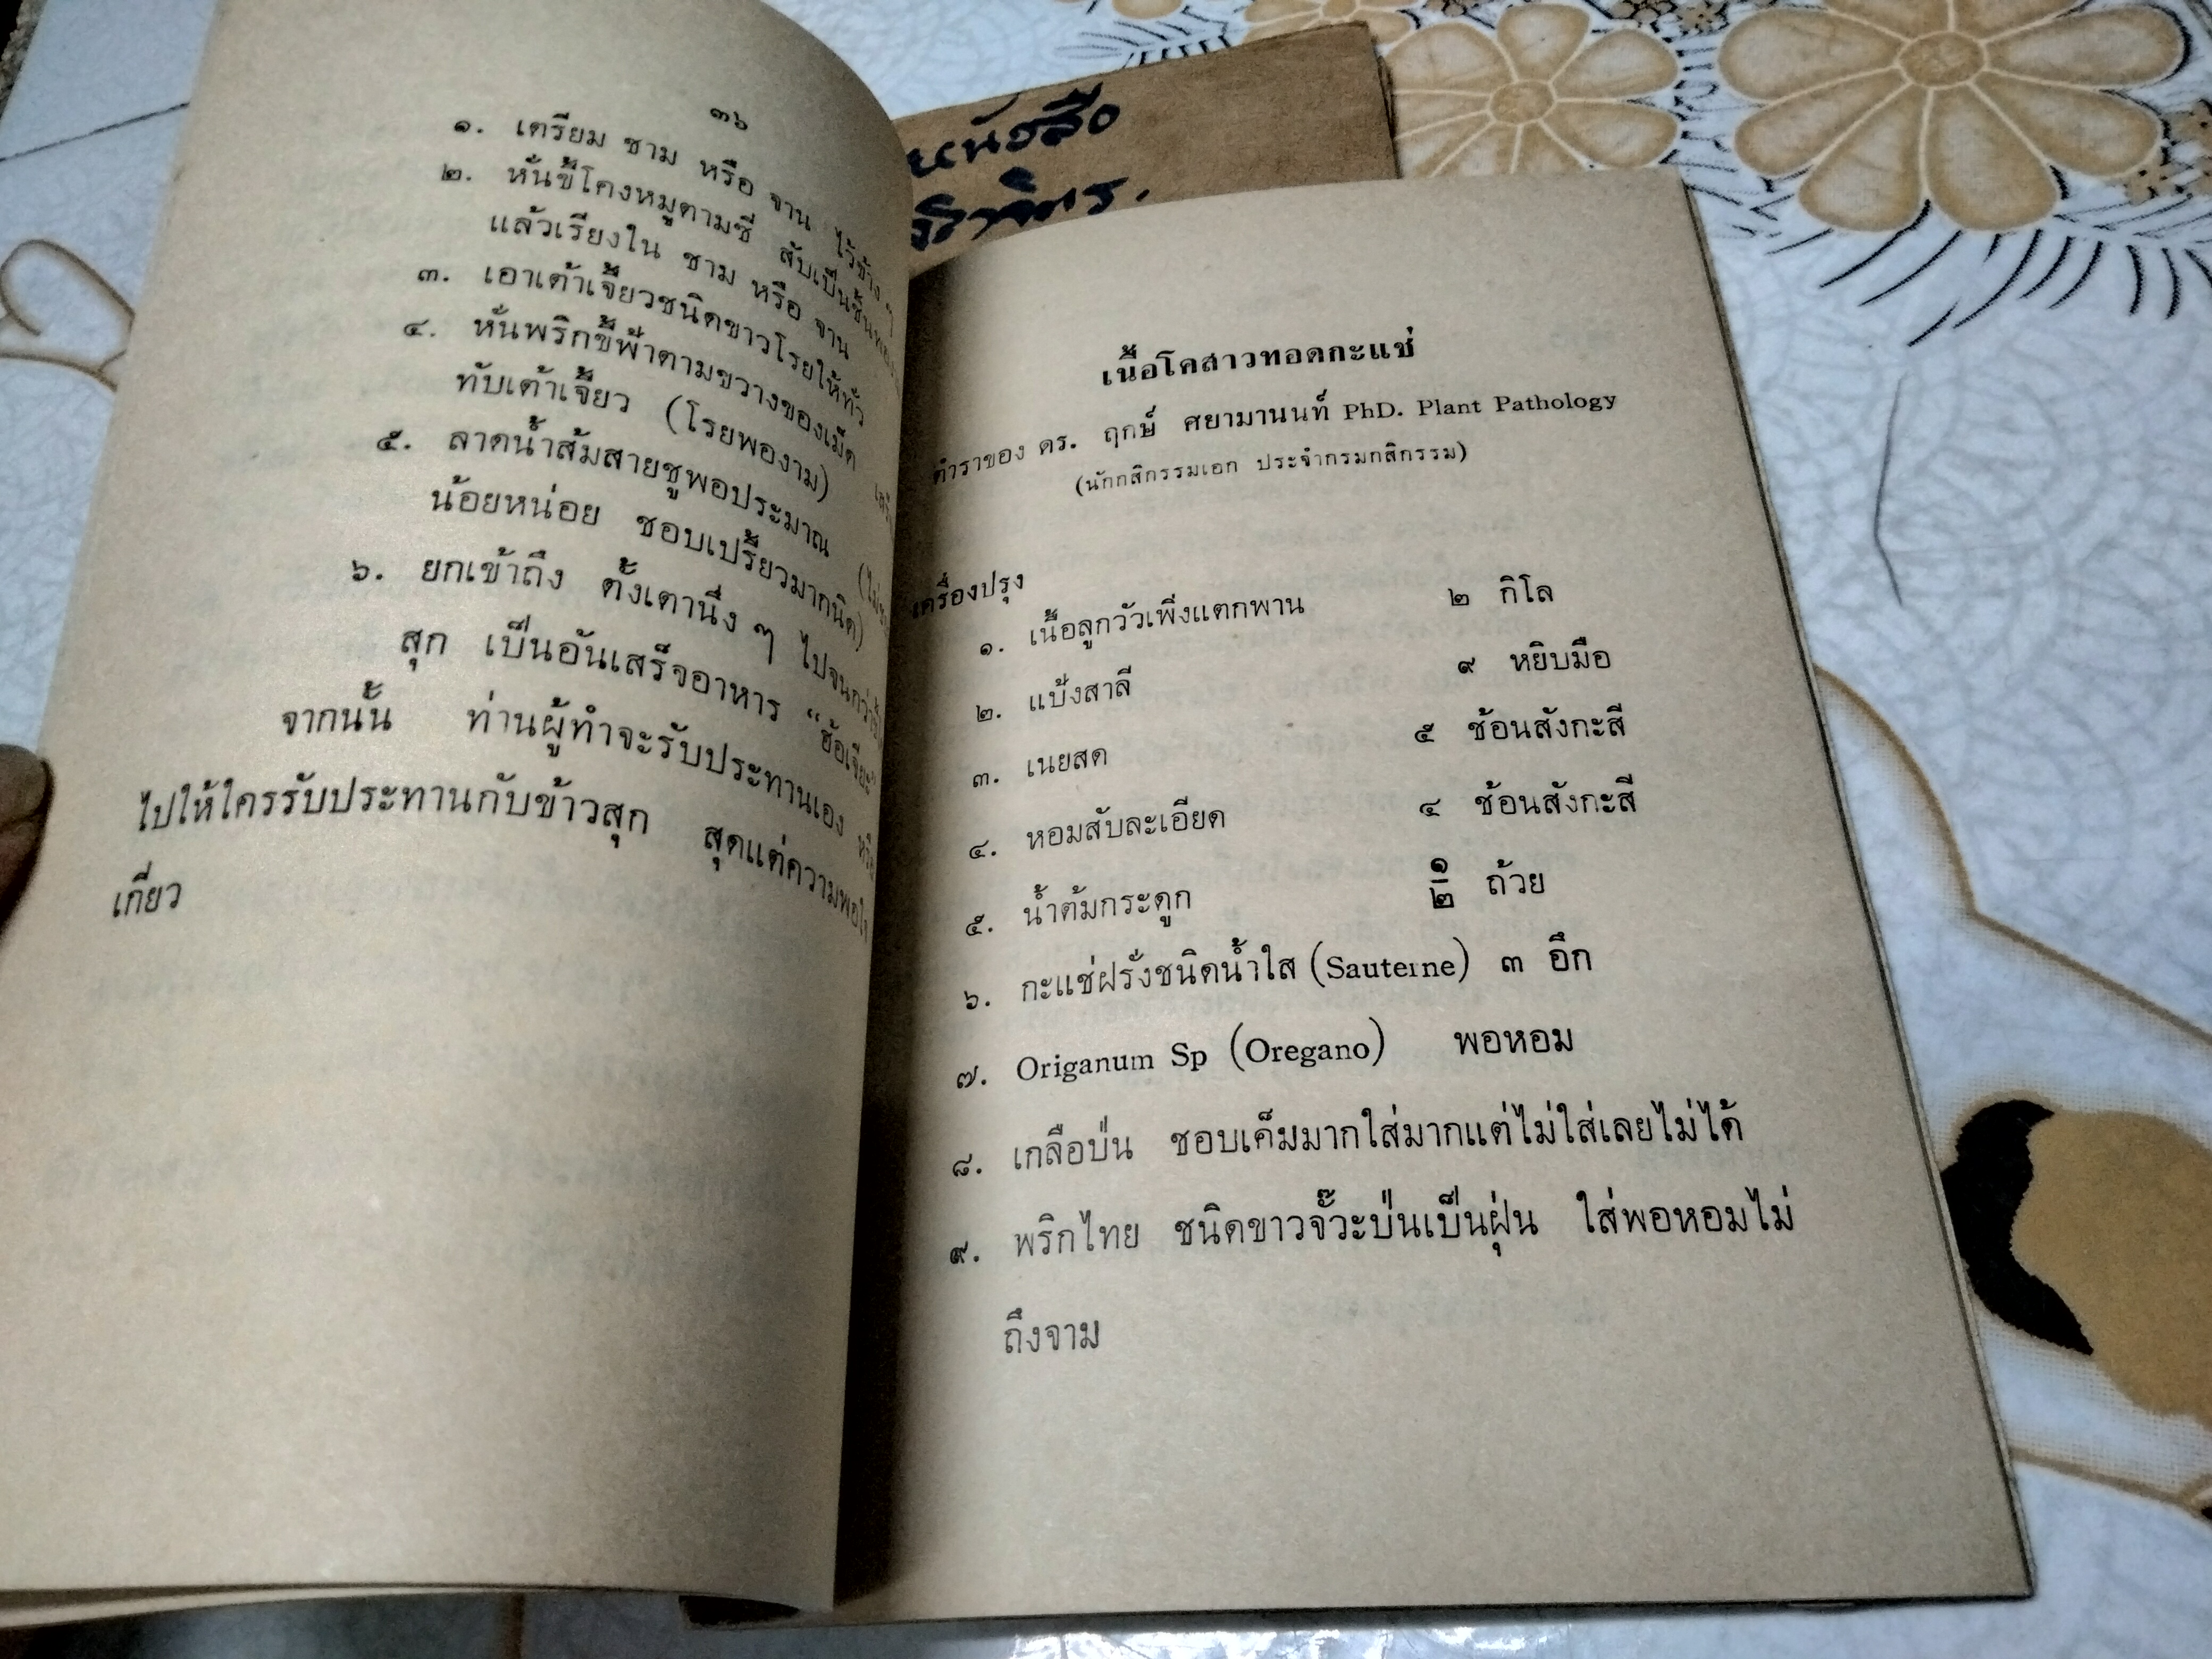 ๓๖
๑. เตรียม ชาม หรือ จาน ไว้ข้าง ๆ
๒. หั่นขี้โคงหมูตามซี่ สับเป็นชิ้น
แล้วเรียงใน ชาม หรือ จาน
๓. เอาเต้าเจี้ยวชนิดขาวโรยให้ทั่ว
๔. หั่นพริกขี้ฟ้าตามขวางของเม็ด
ทับเต้าเจี้ยว (โรยพองาม)
๕. ลาดน้ำส้มสายชูพอประมาณ
น้อยหน่อย ชอบเปรี้ยวมากนิด)
๖. ยกเข้าถึง ตั้งเตานึ่ง ๆ ไปจนกว่า
สุก เป็นอันเสร็จอาหาร “ฮ้อเจี๊ยะ”
จากนั้น ท่านผู้ทำจะรับประทานเอง หรือ
ไปให้ใครรับประทานกับข้าวสุก สุดแต่ความพอใจ
เกี่ยว
หนังสือ
เนื้อโคสาวทอดกะแช่
ตำราของ ดร. ฤกษ์ ศยามานนท์ PhD. Plant Pathology
(นักกสิกรรมเอก ประจำกรมกสิกรรม)
เครื่องปรุง
๑. เนื้อลูกวัวเพิ่งแตกพาน ๒ กิโล
๒. แป้งสาลี ๙ หยิบมือ
๓. เนยสด ๕ ช้อนสังกะสี
๔. หอมสับละเอียด ๔ ช้อนสังกะสี
๕. น้ำต้มกระดูก ๑/๒ ถ้วย
๖. กะแช่ฝรั่งชนิดน้ำใส (Sauterne) ๓ อึก
๗. Origanum Sp (Oregano) พอหอม
๘. เกลือป่น ชอบเค็มมากใส่มากแต่ไม่ใส่เลยไม่ได้
๙. พริกไทย ชนิดขาวจั๊วะป่นเป็นฝุ่น ใส่พอหอมไม่
ถึงจาม